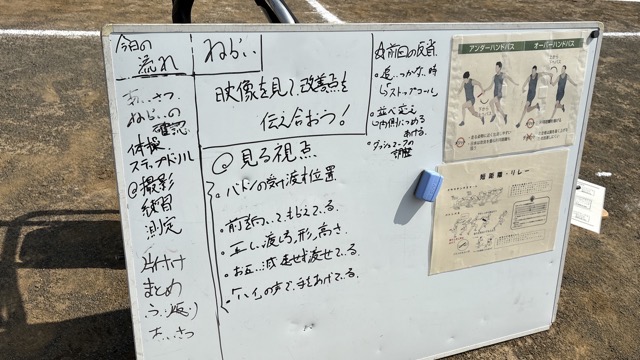 今日の
流れ
あいさつ
ねらいの
確認
体操
ステップドリル
◎撮影
練習
測定
片付け
まとめ
ふり返り
あいさつ
ねらい
映像を見て、改善点を
伝え合おう!
◎見る視点
・バトンの受け渡す位置
・前を向いてもらえている。
・正しい渡し方、形、高さ
・お互い減速せず渡せている。
・「ハイ」の声で手をあげている。
☆前回の反省
・追いつかない時
ストップコール
・並べ変え
内側につめる
あける。
・ダッシュマークの
調整
アンダーハンドパス
オーバーハンドパス
短距離・リレー